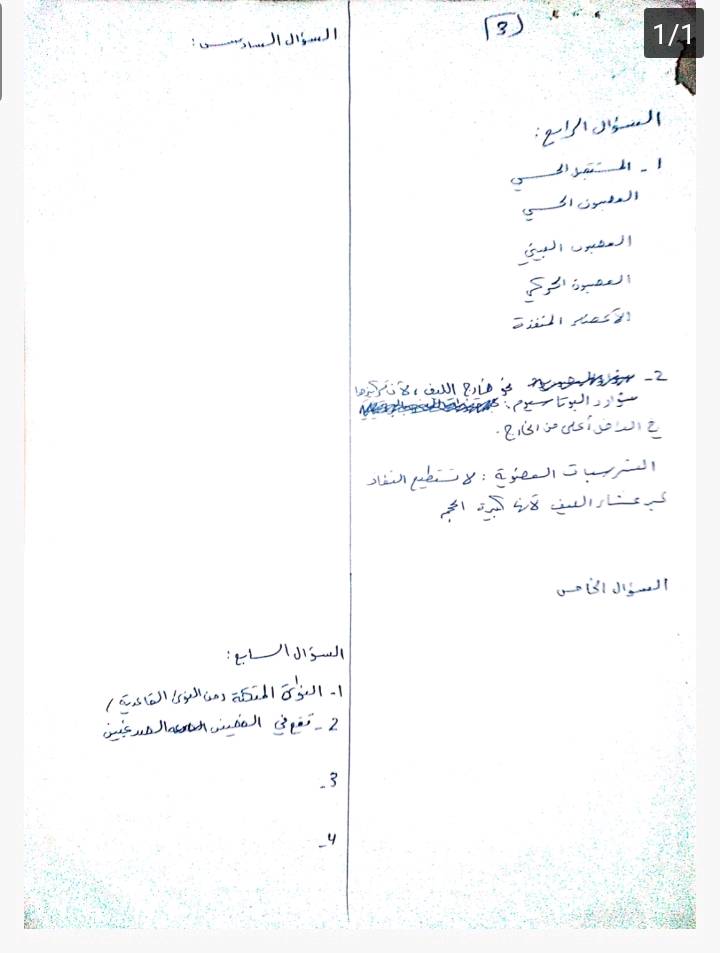 1/1
3
السؤال الرابع:
1 - المستقبل الحسي
العصبون الحسي
العصبون البيني
العصبون الحركي
الأعضاء المنفذة
2 - نحو خارج الليف، لأن تركيزها
شوارد البوتاسيوم:
في الداخل أعلى من الخارج.
الشرسبات العضوية: لا تستطيع النفاذ
عبر غشاء الليف لأنها كبيرة الحجم
السؤال الخامس
السؤال السادس:
السؤال السابع:
1- النواة المتكئة (من النوى القاعدية)
2- تقع في الفصين الصدغيين
3-
4-